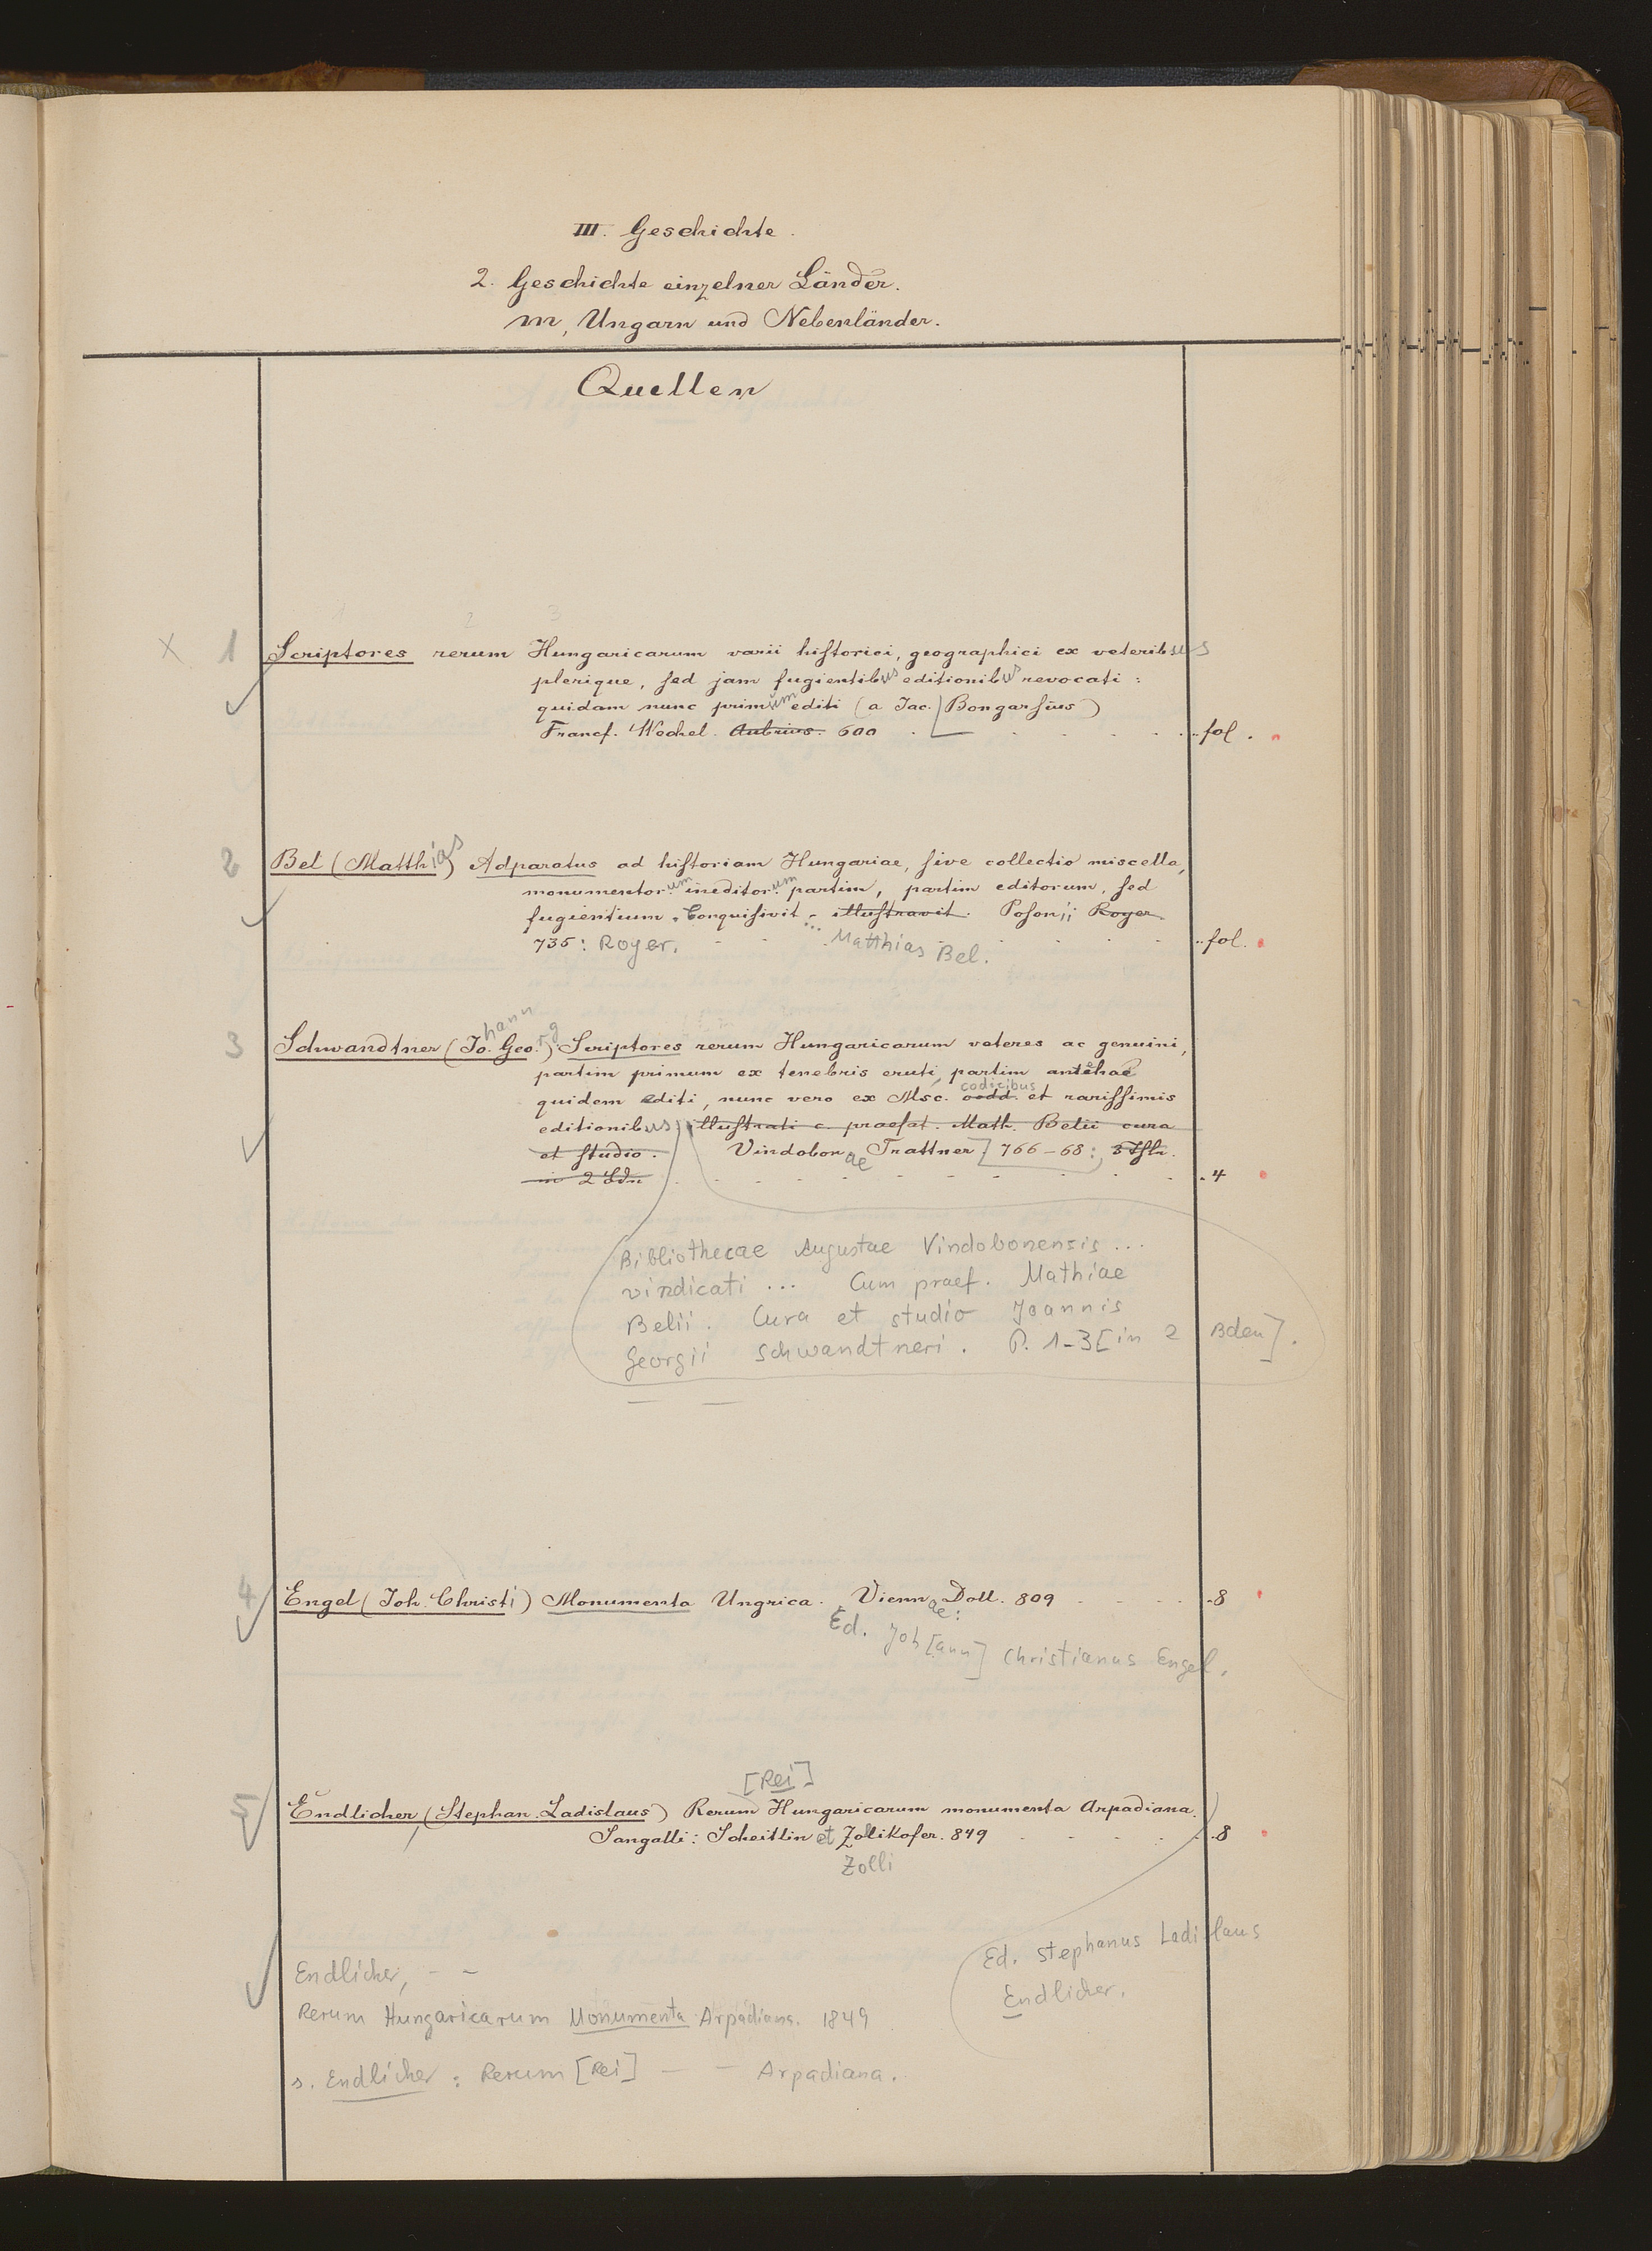 III. Geschichte.
2. Geschichte einzelner Länder.
m, Ungarn und Nebenländer.
Quellen
1 2 3
x 1 Scriptores rerum Hungaricarum varii historici, geographici ex veteribus
plerique, sed jam fugientibus editionibus revocati:
quidam nunc primum editi (a Jac. Bongarsius)
Francf. Wechel. Aubrius. 600 fol.
2 Bel (Matthias) Adparatus ad historiam Hungariae, sive collectio miscella,
monumentorum ineditorum partim, partim editorum, sed
fugientium. Conquisivit ... illustravit. Posonii Royer
735: Royer. Matthias Bel. fol.
3 Schwandtner (Johann Georg) Scriptores rerum Hungaricarum veteres ac genuini,
partim primum ex tenebris eruti, partim antehac
codicibus
quidem editi, nunc vero ex Msc. codd. et rarissimis
editionibus illustrati c. praefat. Math. Belii cura
et studio. Vindobonae Trattner 766-68: 3 Thle.
in 2 Bdn 4
Bibliothecae Augustae Vindobonensis ...
vindicati ... Cum praef. Mathiae
Belii. Cura et studio Joannis
Georgii Schwandtneri. P. 1-3 [in 2 Bden].
4 Engel (Joh. Christi) Monumenta Ungrica. Viennae: Doll. 809 8
Ed. Joh[ann] Christianus Engel.
[Rei]
5 Endlicher, (Stephan Ladislaus) Rerum Hungaricarum monumenta Arpadiana.
Sangalli: Scheitlin et Zollikofer. 849 8
Zolli
Ed. Stephanus Ladislaus
Endlicher.
Endlicher, - -
Rerum Hungaricarum Monumenta Arpadiana. 1849
s. Endlicher: Rerum [Rei] - - Arpadiana.